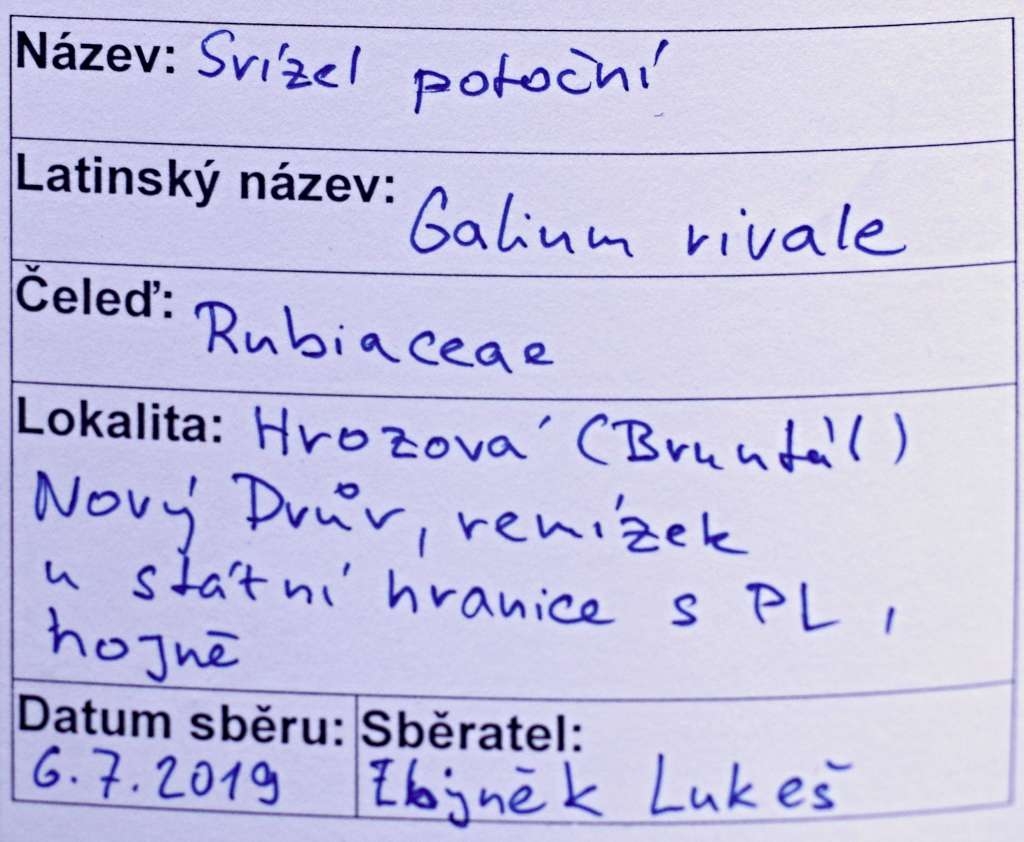 Název: Svízel potoční
Latinský název: Galium rivale
Čeleď: Rubiaceae
Lokalita: Hrozová (Bruntál)
Nový Dvůr, remízek
u státní hranice s PL,
hojně
Datum sběru: Sběratel:
6.7.2019 Zbyněk Lukeš